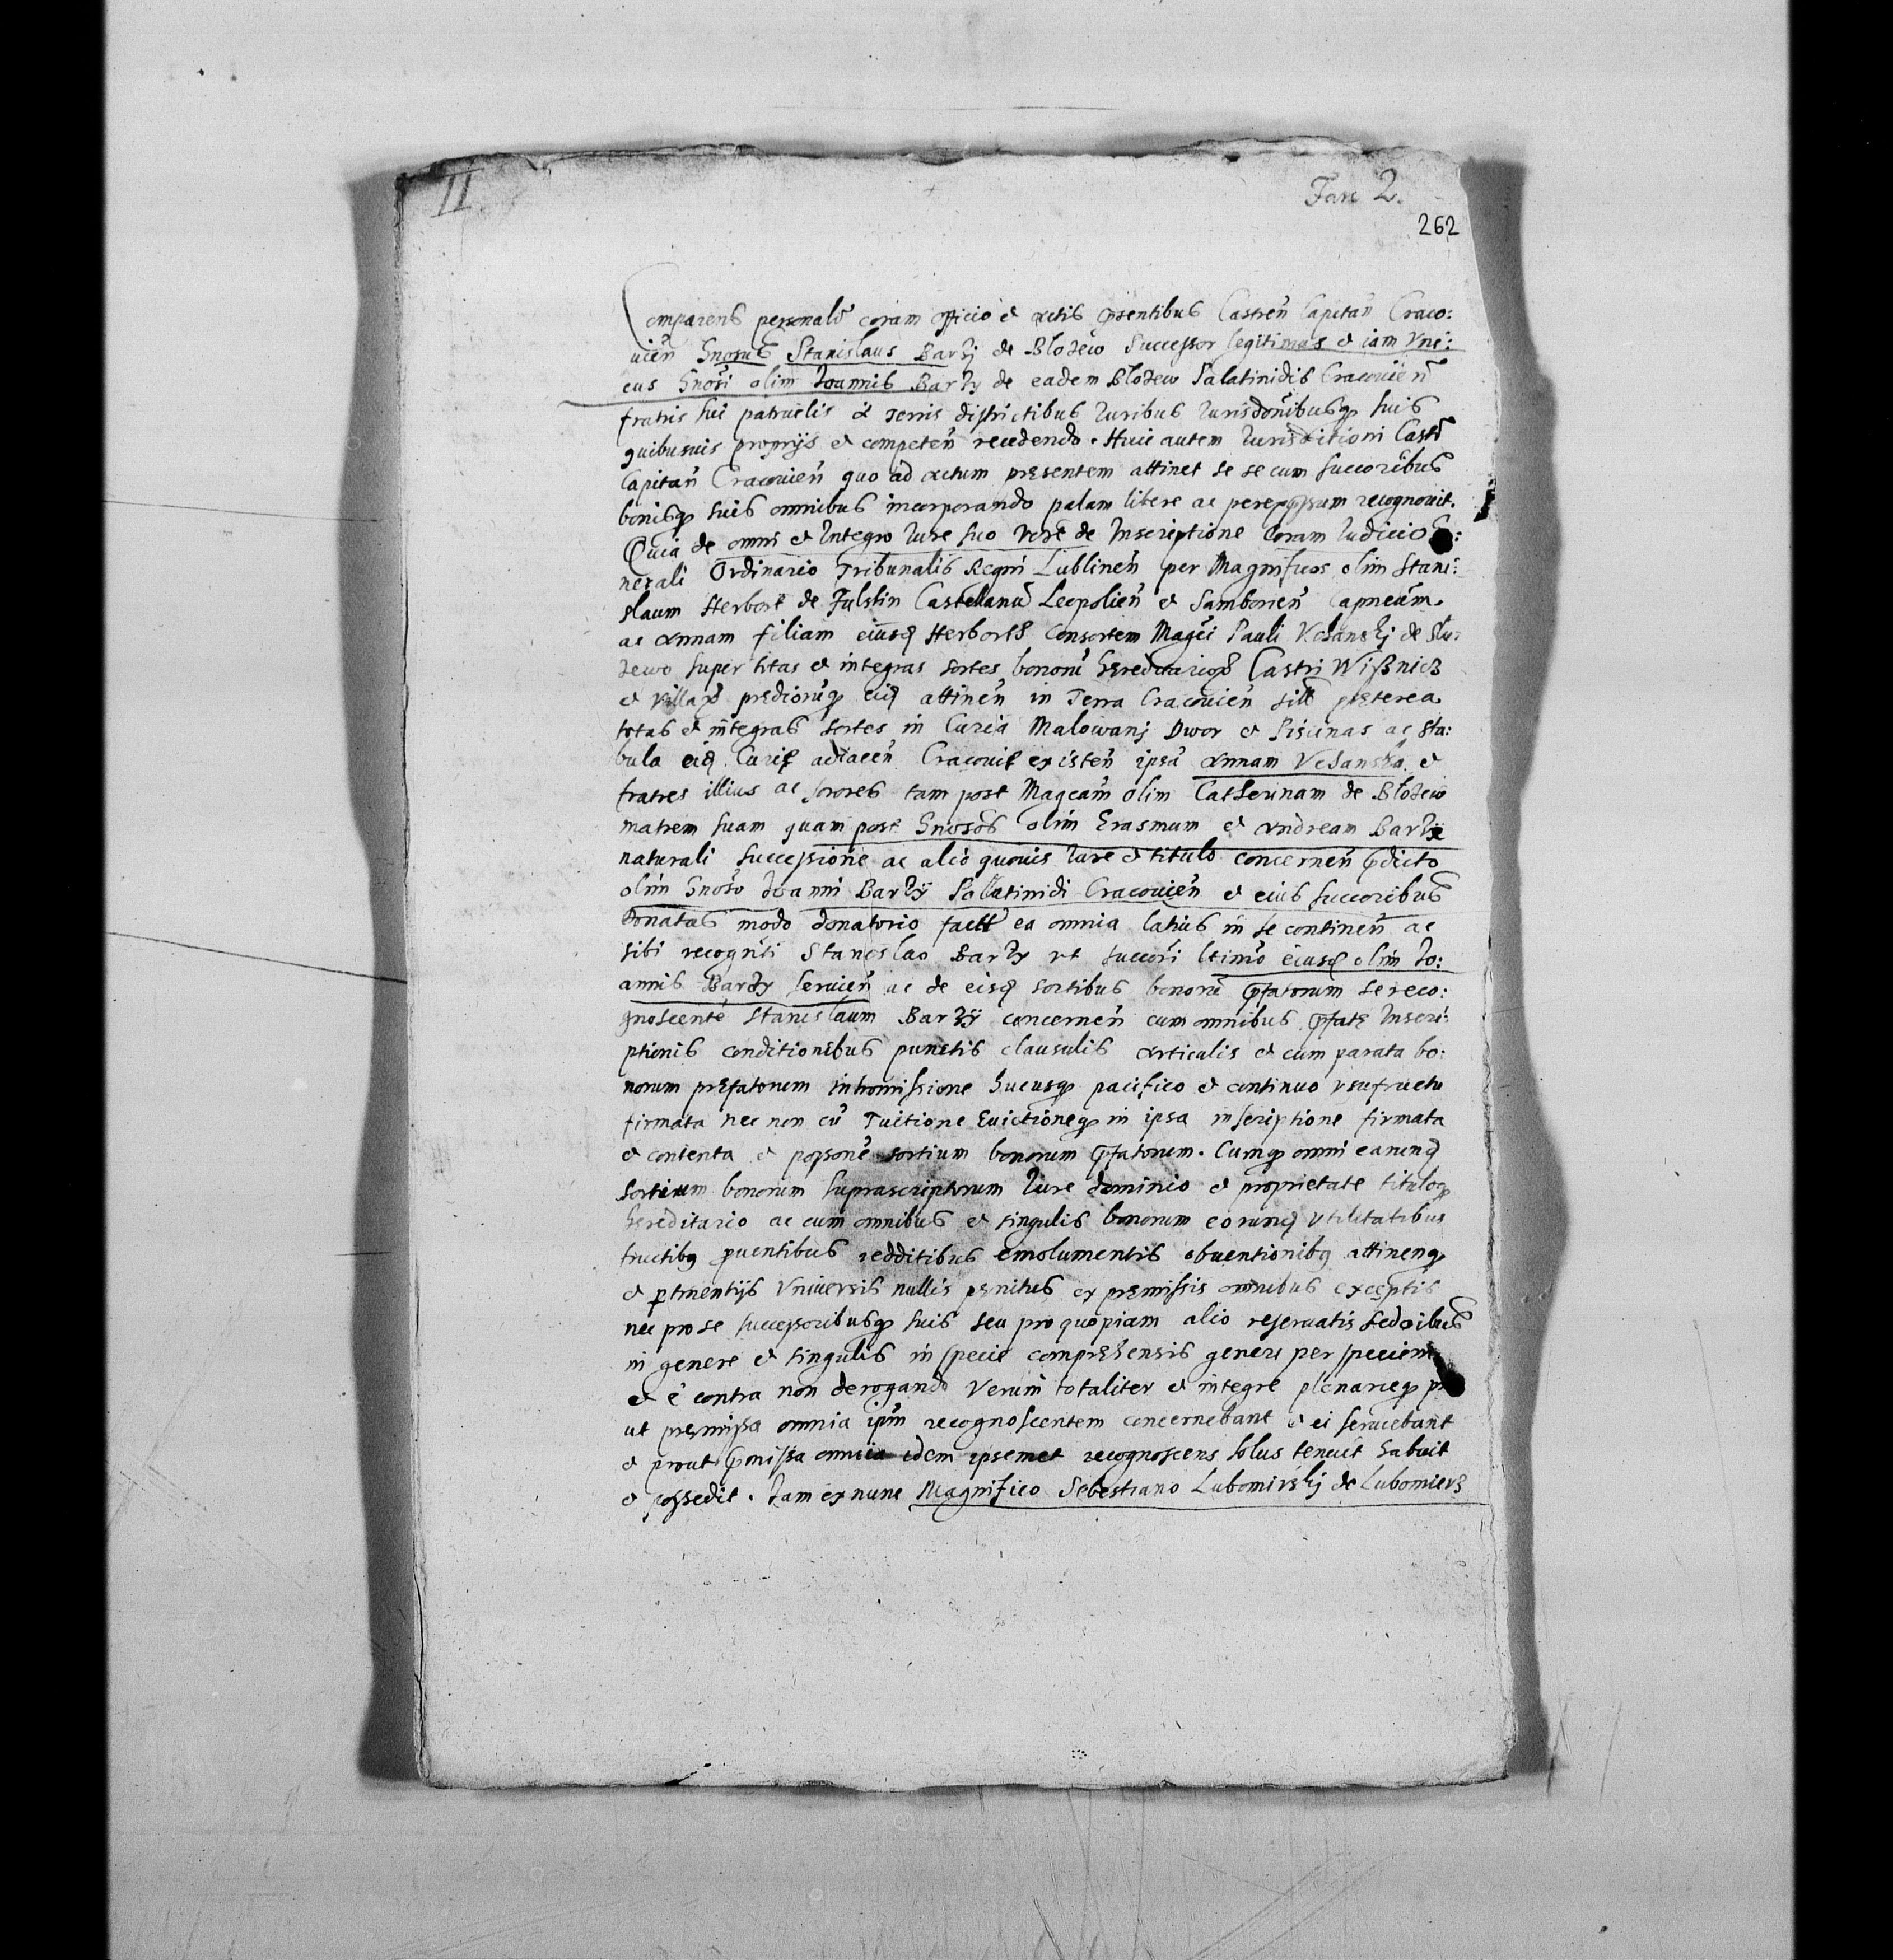 II
Fasc 2.
262
Comparens personalr coram officio et actis pńsentibus Castreń Capitań Craco:
uień Gnosus Stanislaus Barzj de Blozewo Successor legitimus et iam Vni:
cus Gnosi olim Ioannis Barzy de eadem Blozew Palatinidis Cracouień
fratris sui patruelis à terris districtibus Iuribus Iurisdonibusq suis
quibusuis proprijs et competeń recedendo. Huic autem Iurisditioni Castr
Capitań Cracouień quo ad actum pręsentem attinet se se cum succoribus
bonisq suis omnibus incorporando palam libere ac per expressum recognouit.
Quia de omni et Integro Iure suo vere de Inscriptione coram Iudicio Ge:
nerali Ordinario Tribunalis Regni Lublineń per Magnificos olim Stani:
slaum Herbort de Fulstin Castellanū Leopolień et Samborień Capneum.
ac Annam filiam eiusd Herborth consortem Magci Pauli Vchanskj de Slu:
zewo super totas et integras sortes bonorū hęreditarior Castri Wißnicz
et villar prędiorūq eis attineń in Terra Cracouień sitt pręterea
totas et integras sortes in Curia Malowanj Dwor et Piscinas ac sta:
bula eid Curię adiaceń Cracouię existeń ipsā Annam Vchanska et
fratres illius ac sorores tam post Magcam olim Catherinam de Blozew
matrem suam quam post Gnosos olim Erasmum et Andream Barzy
naturali successione ac alio quouis Iure et titulo concerneń pdicto
olim Gnoso Ioanni Barzy Palatinidi Cracouień et eius succoribus
donatas modo donatorio factt ea omnia latius in se contineń ac
sibi recogniti Stanislao Barzy vt succori ltimo eiusd olim Io:
annis Barzy seruień ac de eisd sortibus bonorū pfatorum se reco:
gnoscentē Stanislaum Barzy concerneń cum omnibus pfatę Inscri:
ptionis conditionibus punctis clausulis articulis et cum parata bo:
norum pręfatorum intromissione hucusq pacifico et continuo vsufructu
firmata nec non cū Tuitione Euictioneq in ipsa inscriptione firmata
et contenta et possone sortium bonorum pfatorum. Cumq omni earund
sortium bonorum suprascriptorum Iure dominio et proprietate tituloq
hęreditario ac cum omnibus et singulis bonorum eorund vtilitatibus
fructibq puentibus redditibus emolumentis obuentionibq attinenq
et ptinentijs Vniuersis nullis pęnitus ex pręmissis omnibus exceptis
nec pro se successoribusq suis seu pro quopiam alio reseruatis sed oibus
in genere et singulis in specie compręhensis generi per speciem
et è contra non derogando Verum totaliter et integre plenarieq pro
ut pręmissa omnia ipm recognoscentem concernebant et ei seruiebant
et prout pmissa omnia idem ipsemet recognoscens solus tenuit habuit
et possedit. Iam ex nunc Magnifico Sebestiano Lubomirskj de Lubomierz